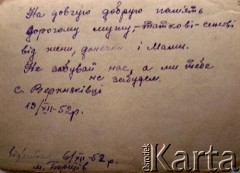 На довгую добрую пам'ять
дорогому мужу-таткові-синові
від жени, донечки і Мами.
Не забувай нас, а ми тебе
не забудем.
с. Верхняківці
19/XII-52 р.
6/XII-52 р.
м. Борщів
ośrodek
Karta